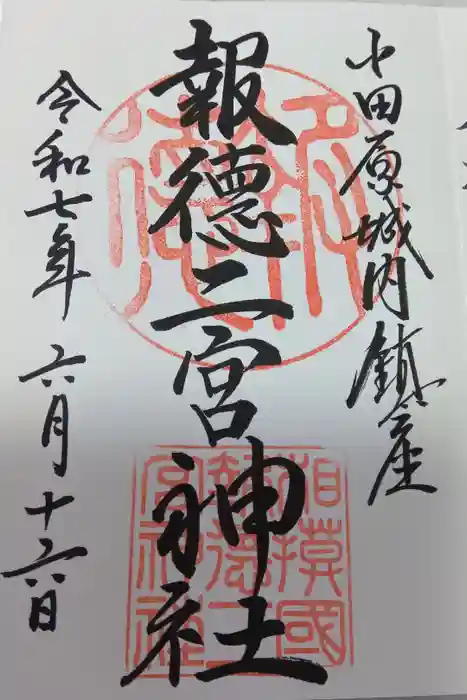 小田原城内鎮座
報徳二宮神社
令和七年 六月十六日
相模國
報徳二
宮神社